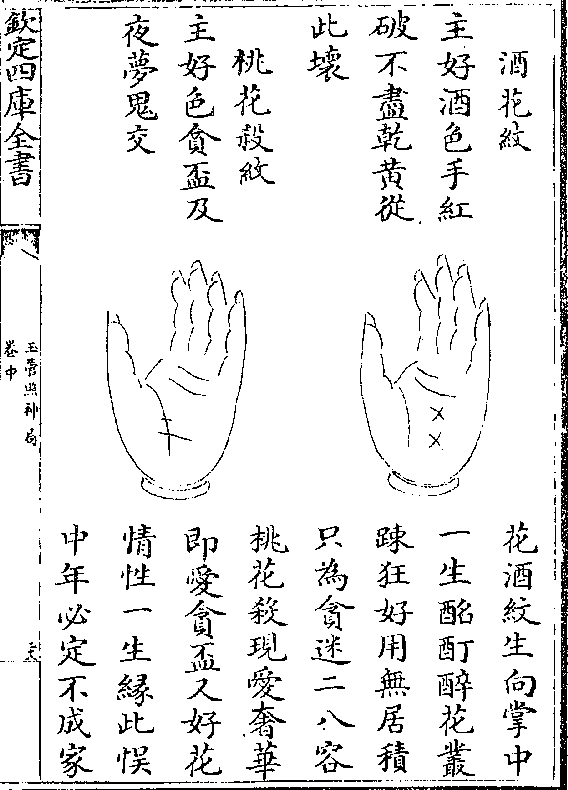 酒花紋
主好酒色手紅
破不盡乾黃從
此壞
桃花殺紋
主好色貪盃及
夜夢鬼交
花酒紋生向掌中
一生酩酊醉花叢
踈狂好用無居積
只為貪迷二八容
桃花殺現愛奢華
即愛貪盃又好花
情性一生緣此悞
中年必定不成家
欽定四庫全書
玉管照神局
卷中